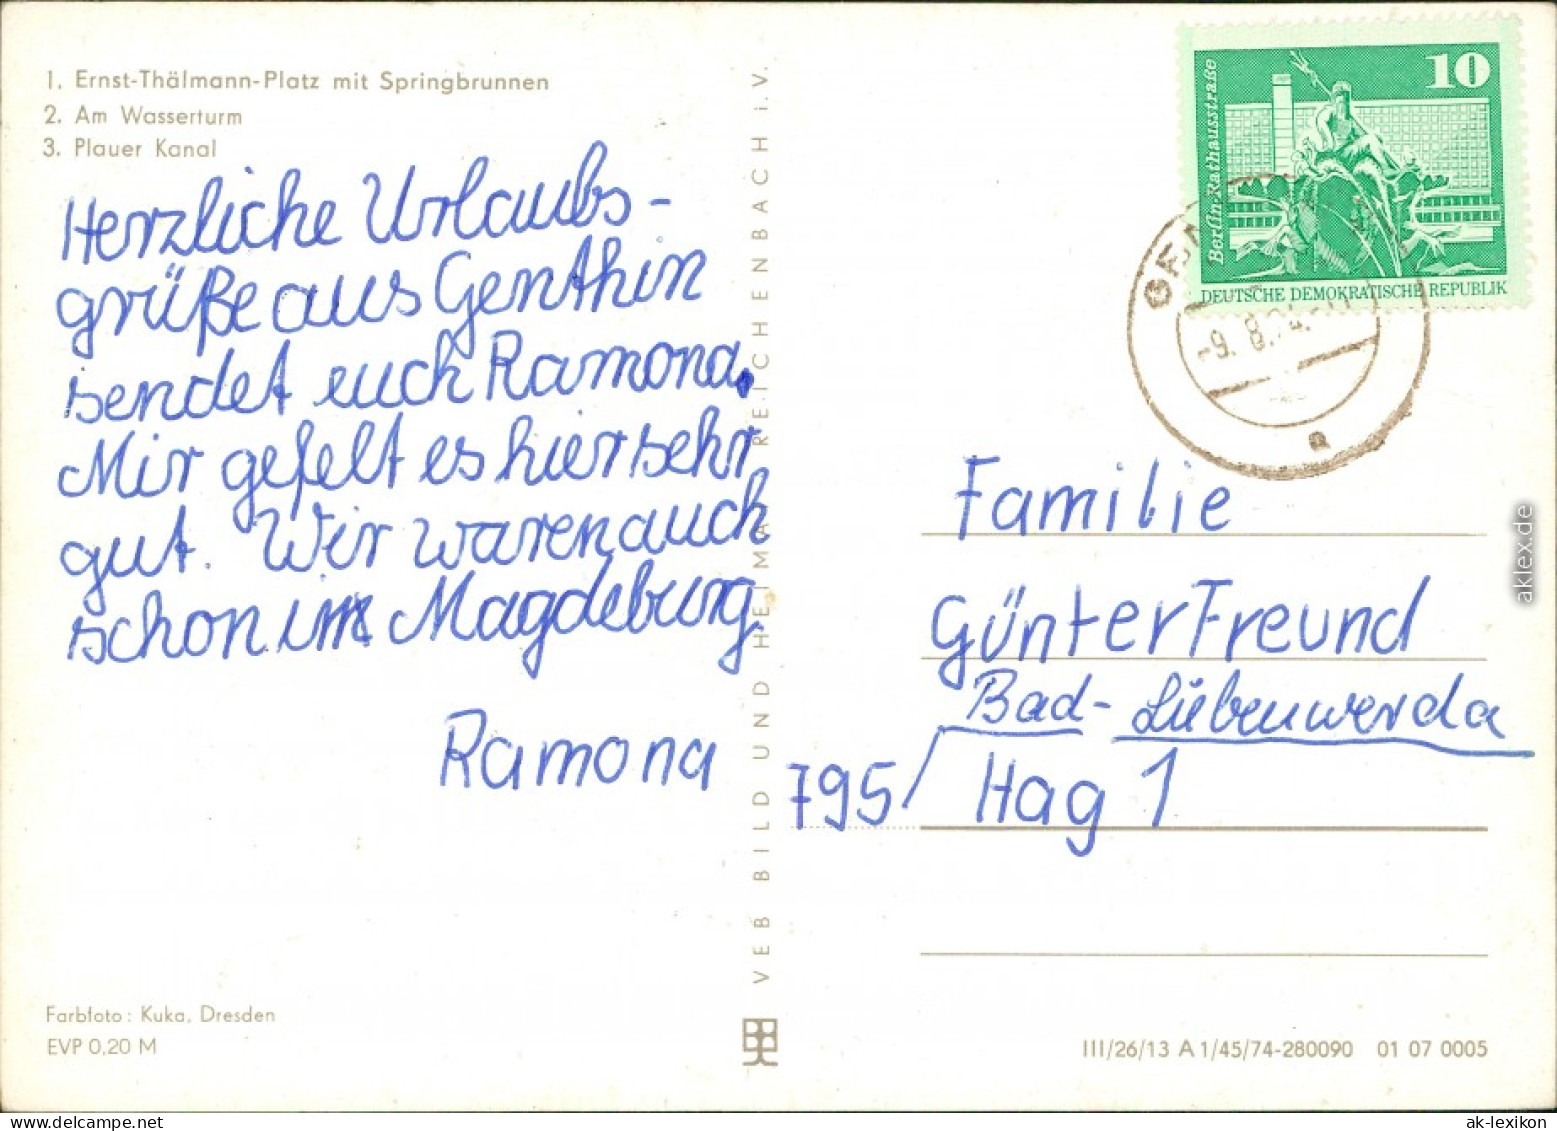 1. Ernst-Thälmann-Platz mit Springbrunnen
2. Am Wasserturm
3. Plauer Kanal
Herzliche Urlaubs-
grüße aus Genthin
sendet euch Ramona.
Mir gefelt es hier sehr
gut. Wir waren auch
schon in Magdeburg.
Ramona
Farbfoto: Kuka, Dresden
EVP 0,20 M
VEB BILD UND HEIMAT REICHENBACH i.V.
10
Berlin, Rathausstraße
DEUTSCHE DEMOKRATISCHE REPUBLIK
-9. 8.74.
a
Familie
Günter Freund
Bad-Liebenwerda
795/ Hag 1
III/26/13 A 1/45/74-280090 01 07 0005
aklex.de
ak-lexikon